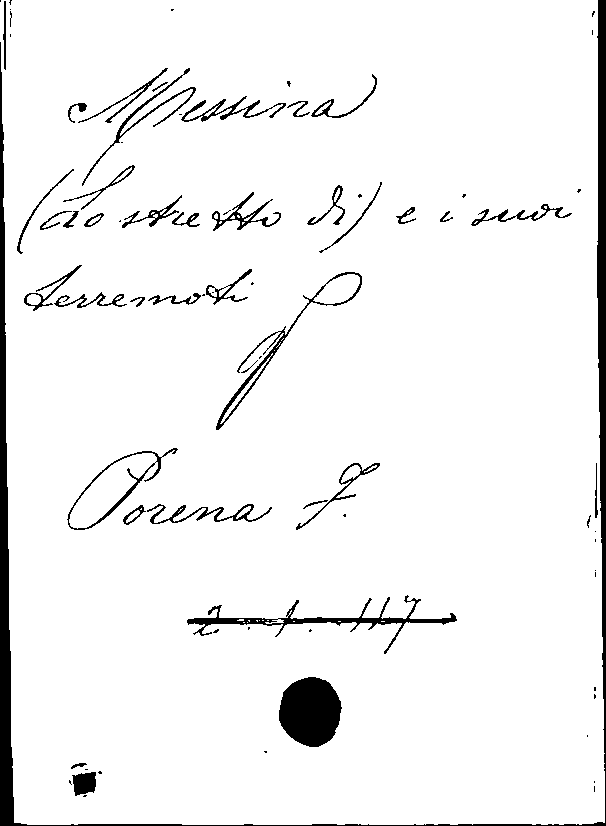 Messina
(Lo stretto di) e i suoi
terremoti
Porena F.
2. 1. 117